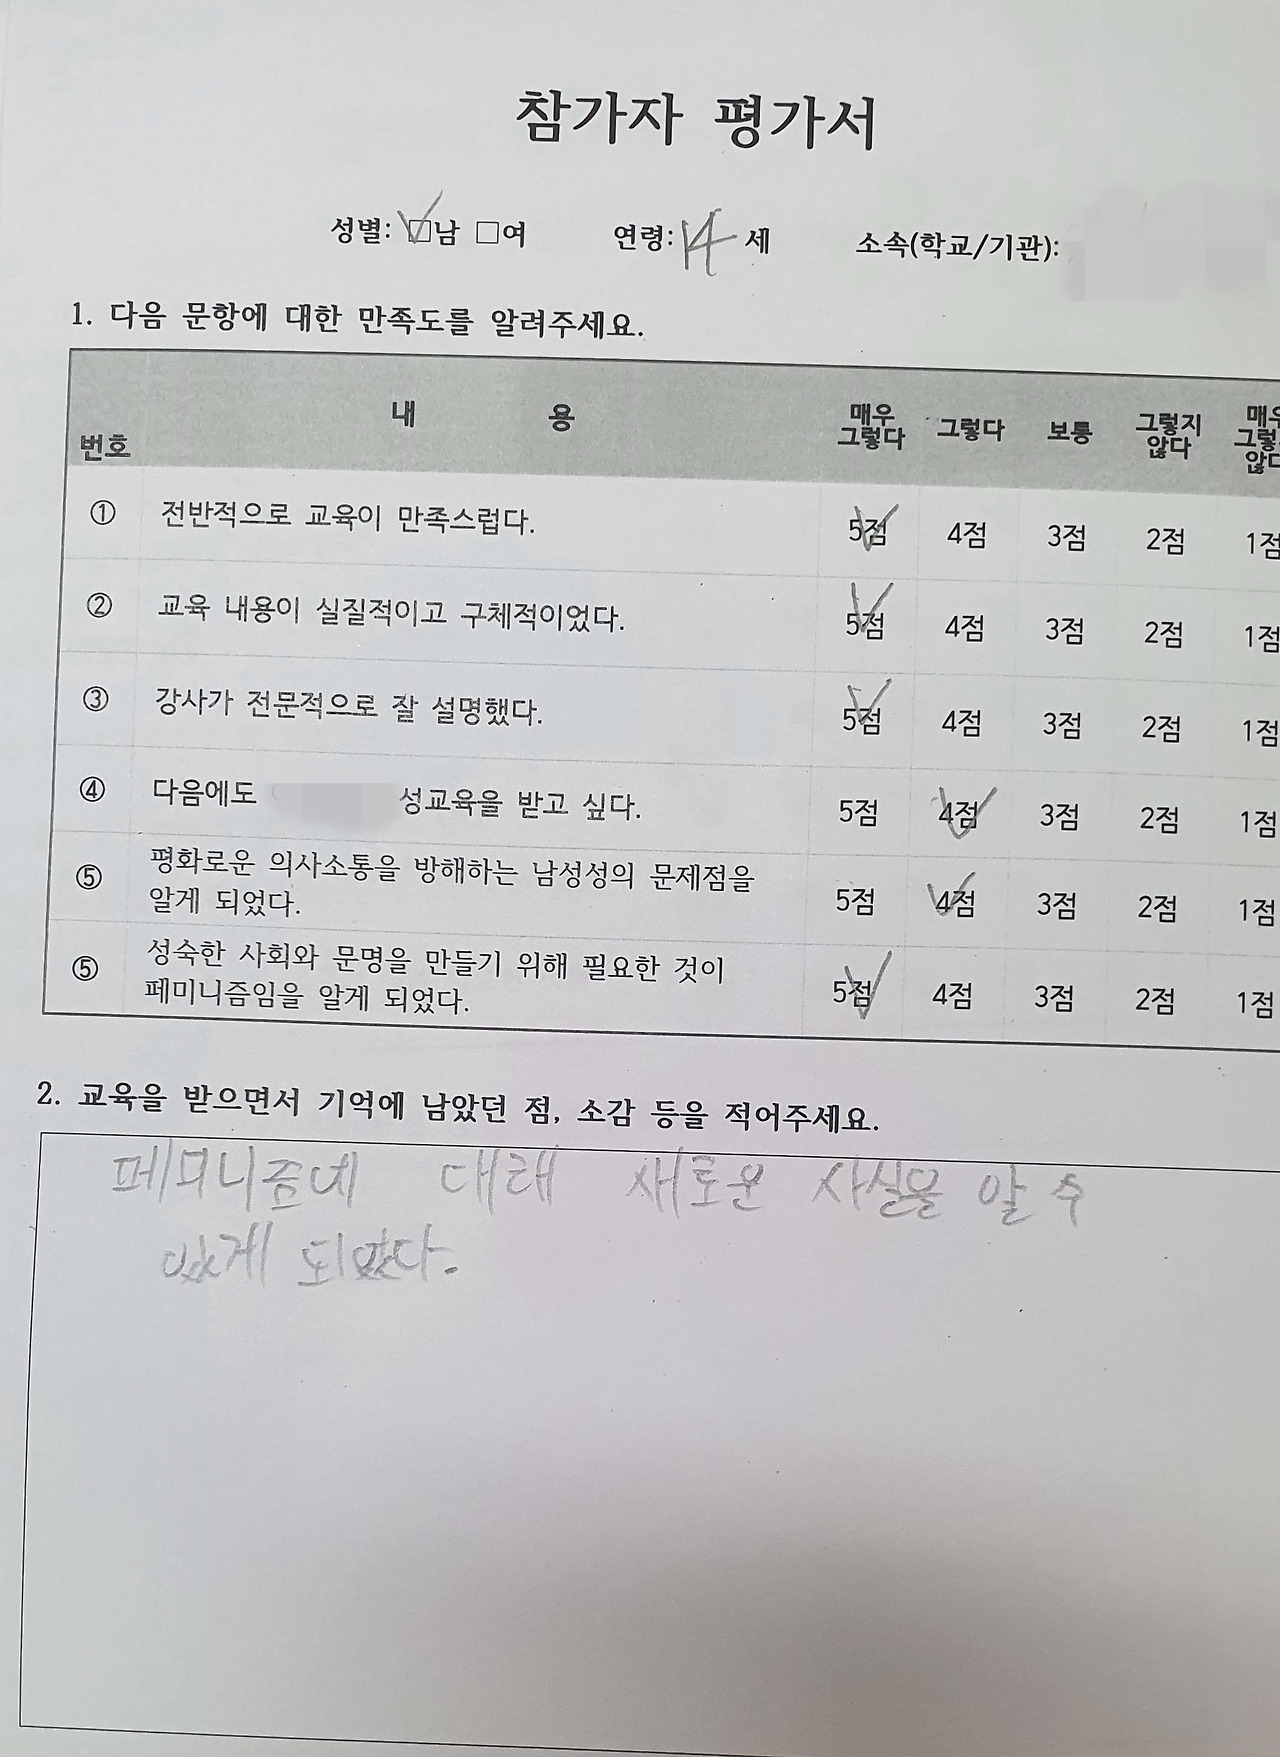 참가자 평가서
성별: □남 □여 연령: 14 세 소속(학교/기관):
1. 다음 문항에 대한 만족도를 알려주세요.
번호 내 용 매우 그렇다 그렇다 보통 그렇지 않다
① 전반적으로 교육이 만족스럽다. 5점 4점 3점 2점 1점
② 교육 내용이 실질적이고 구체적이었다. 5점 4점 3점 2점 1점
③ 강사가 전문적으로 잘 설명했다. 5점 4점 3점 2점 1점
④ 다음에도 성교육을 받고 싶다. 5점 4점 3점 2점 1점
⑤ 평화로운 의사소통을 방해하는 남성성의 문제점을
알게 되었다. 5점 4점 3점 2점 1점
⑤ 성숙한 사회와 문명을 만들기 위해 필요한 것이
페미니즘임을 알게 되었다. 5점 4점 3점 2점 1점
2. 교육을 받으면서 기억에 남았던 점, 소감 등을 적어주세요.
페미니즘네 대래 새로운 사실을 알 수
있게 되었다.